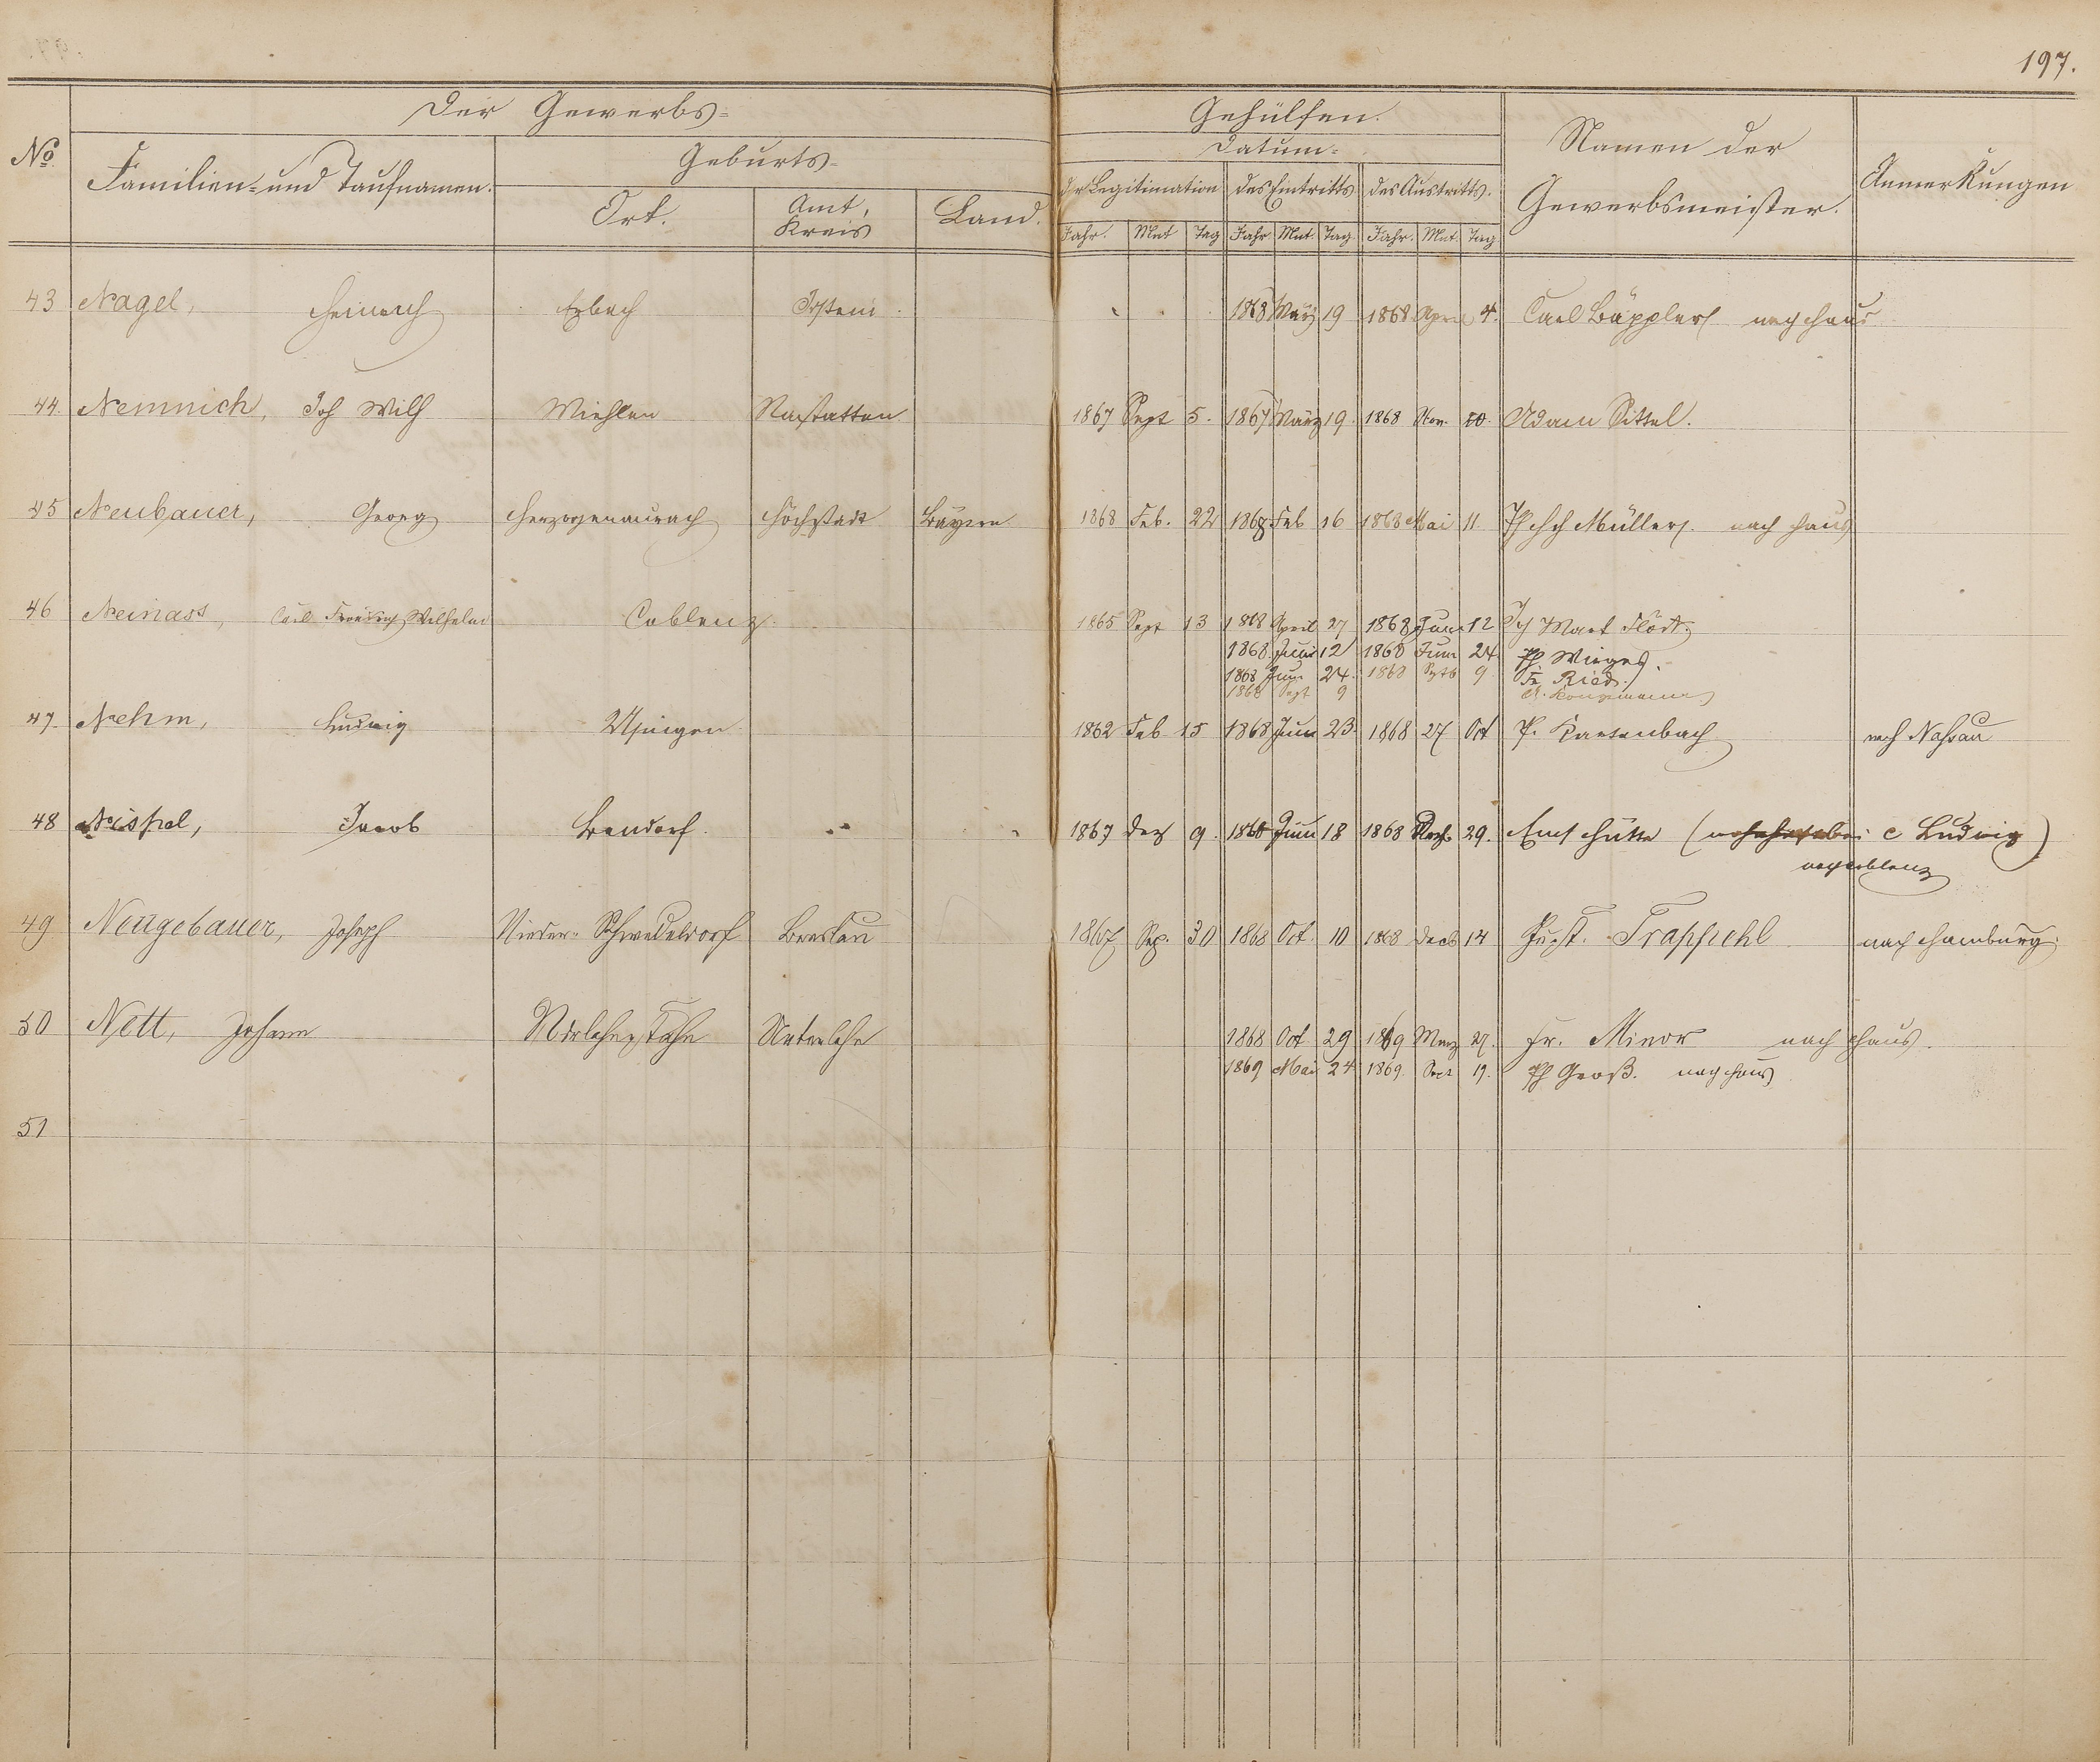 197.
Der Gewerbs= Gehülfen.
No. Familien= und Taufnamen. Geburts= Datum= Namen der Gewerbsmeister. Anmerkungen
Ort. Amt, Kreis Land. der Legitimation des Eintritts des Austritts.
Jahr. Mnt Tag Jahr Mnt. Tag Jahr. Mnt. Tag
43 Nagel, Heinrich Esbach Idstein 1868 März 19 1868 April 4. Carl Bäppler nach Haus
44. Nemnich, Joh Wilh Miehlen Nastätten 1867 Sept 5. 1867 März 19. 1868 Nov. 20. Adam Sittel.
45 Neubauer, Georg Herzogenaurach Höchstadt Bayern 1868 Feb. 22 1868 Feb 16 1868 Mai 11 Ph Müller. nach Haus
46 Neinass, Carl Friedrich Wilhelm Coblenz. 1865 Sept 13 1868 April 27 1868 Juni 12 Mart
1868 Juni 12 1868 Juni 24 Ph Wirges.
1868 Juni 24. 1868 Sept 9 Fr. Ried.
1868 Sept 9
47. Nehm, Ludwig Usingen 1862 Feb 15 1868 Juni 23 1868 27 Oct P. nach Nassau
48 Nispel, Jacob Bendorf. " " 1867 Dez 9. 1868 Juni 18 1868 29. Hütte ( bei C Ludwig)
nach Coblenz
49 Neugebauer, Joseph Nieder= Schwedeldorf Breslau 1867 Sep. 30 1868 Oct. 10 1868 Decb 14 Gust. Trappiehl nach Hamburg.
50 Nett, Johann 1868 Oct. 29 1869 Merz 27. Fr. Minor nach Haus.
1869 Mai 24 1869. Oct 19. Ph Groß. nach Haus
51